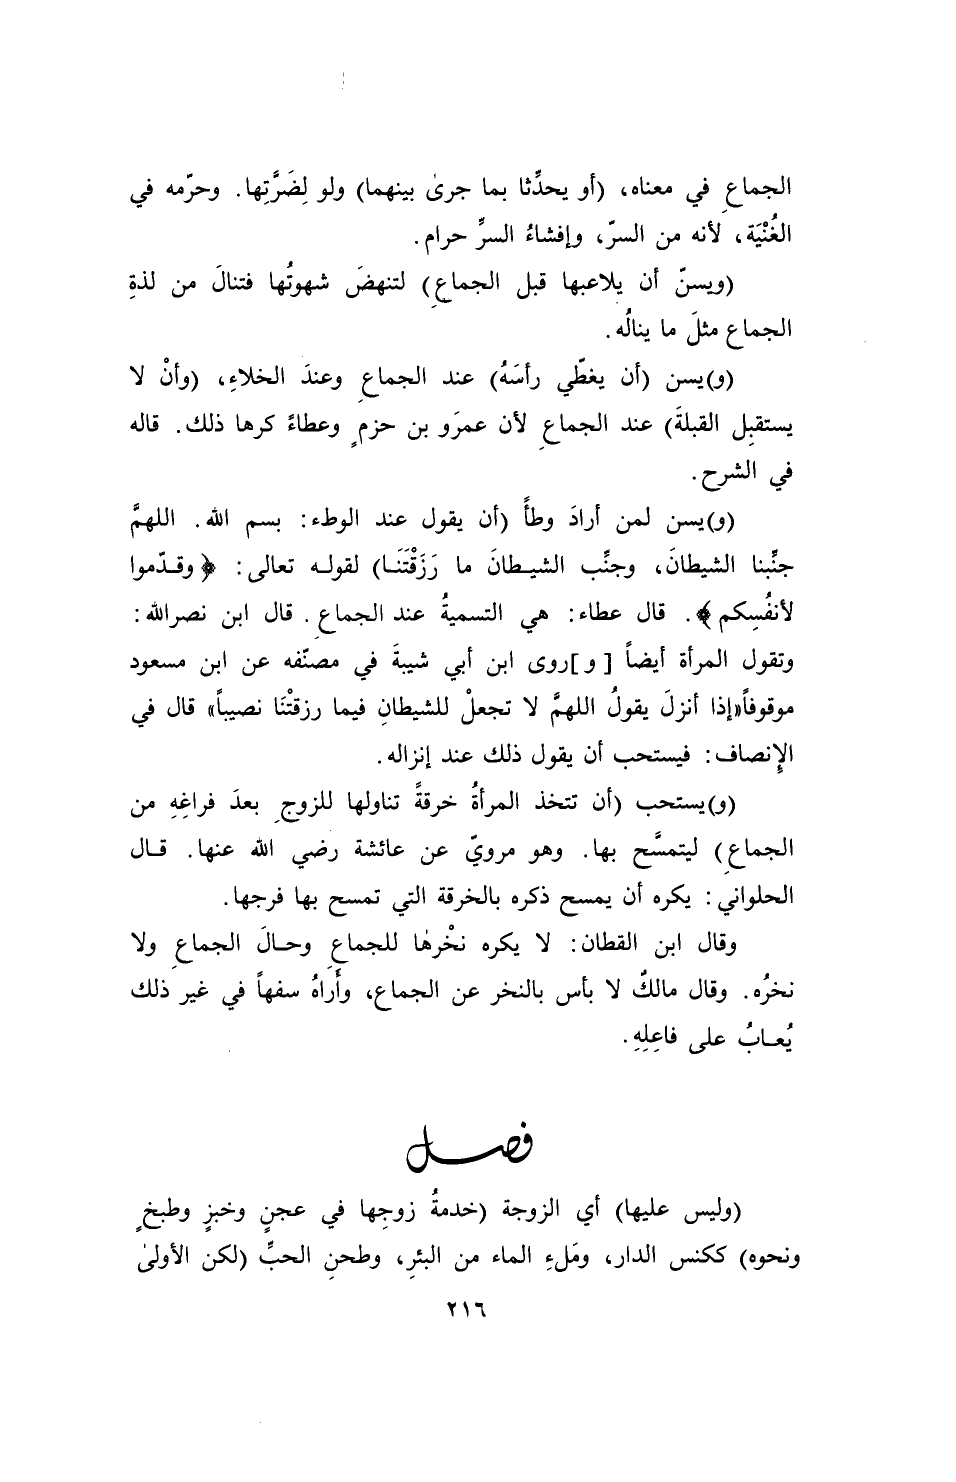 الجماعِ في معناه، (أو يحدِّثا بما جرىٰ بينهما) ولو لِضَرَّتِها. وحرّمه في
الغُنْيَة، لأنه من السرّ، وإفشاءُ السرِّ حرام.
(ويسنّ أن يلاعبها قبل الجماعِ) لتنهضَ شهوتُها فتنالَ من لذةِ
الجماع مثلَ ما ينالُه.
(و)يسن (أن يغطّي رأسَهُ) عند الجماعِ وعندَ الخلاءِ، (وأنْ لا
يستقبِل القبلةَ) عند الجماعِ لأن عمرَو بن حزمٍ وعطاءً كرها ذلك. قاله
في الشرح.
(و)يسن لمن أرادَ وطأً (أن يقول عند الوطء: بسم الله. اللهمَّ
جنِّبنا الشيطانَ، وجنِّب الشيـطانَ ما رَزَقْتَنَـا) لقولـه تعالى: ﴿وقـدّموا
لأنفُسِكم﴾. قال عطاء: هي التسميةُ عند الجماعِ. قال ابن نصرالله:
وتقول المرأة أيضاً [و]روى ابن أبي شيبةَ في مصنّفه عن ابن مسعود
موقوفاً«إذا أنزلَ يقولُ اللهمَّ لا تجعلْ للشيطانِ فيما رزقتْنَا نصيباً» قال في
الإِنصاف: فيستحب أن يقول ذلك عند إنزاله.
(و)يستحب (أن تتخذ المرأةُ خرقةً تناولها للزوجِ بعدَ فراغِهِ من
الجماعِ) ليتمسَّح بها. وهو مرويّ عن عائشة رضي الله عنها. قـال
الحلواني: يكره أن يمسح ذكره بالخرقة التي تمسح بها فرجها.
وقال ابن القطان: لا يكره نخْرهٰا للجماعِ وحـالَ الجماعِ ولا
نخرُه. وقال مالكٌ لا بأس بالنخر عن الجماع، وأَراهُ سفهاً في غير ذلك
يُعـابُ على فاعِلِهِ.
فصل
(وليس عليها) أي الزوجة (خدمةُ زوجِها في عجنٍ وخبزٍ وطبخٍ
ونحوه) ككنس الدار، ومَلءِ الماء من البئرِ، وطحنِ الحبِّ (لكن الأولىٰ
٢١٦